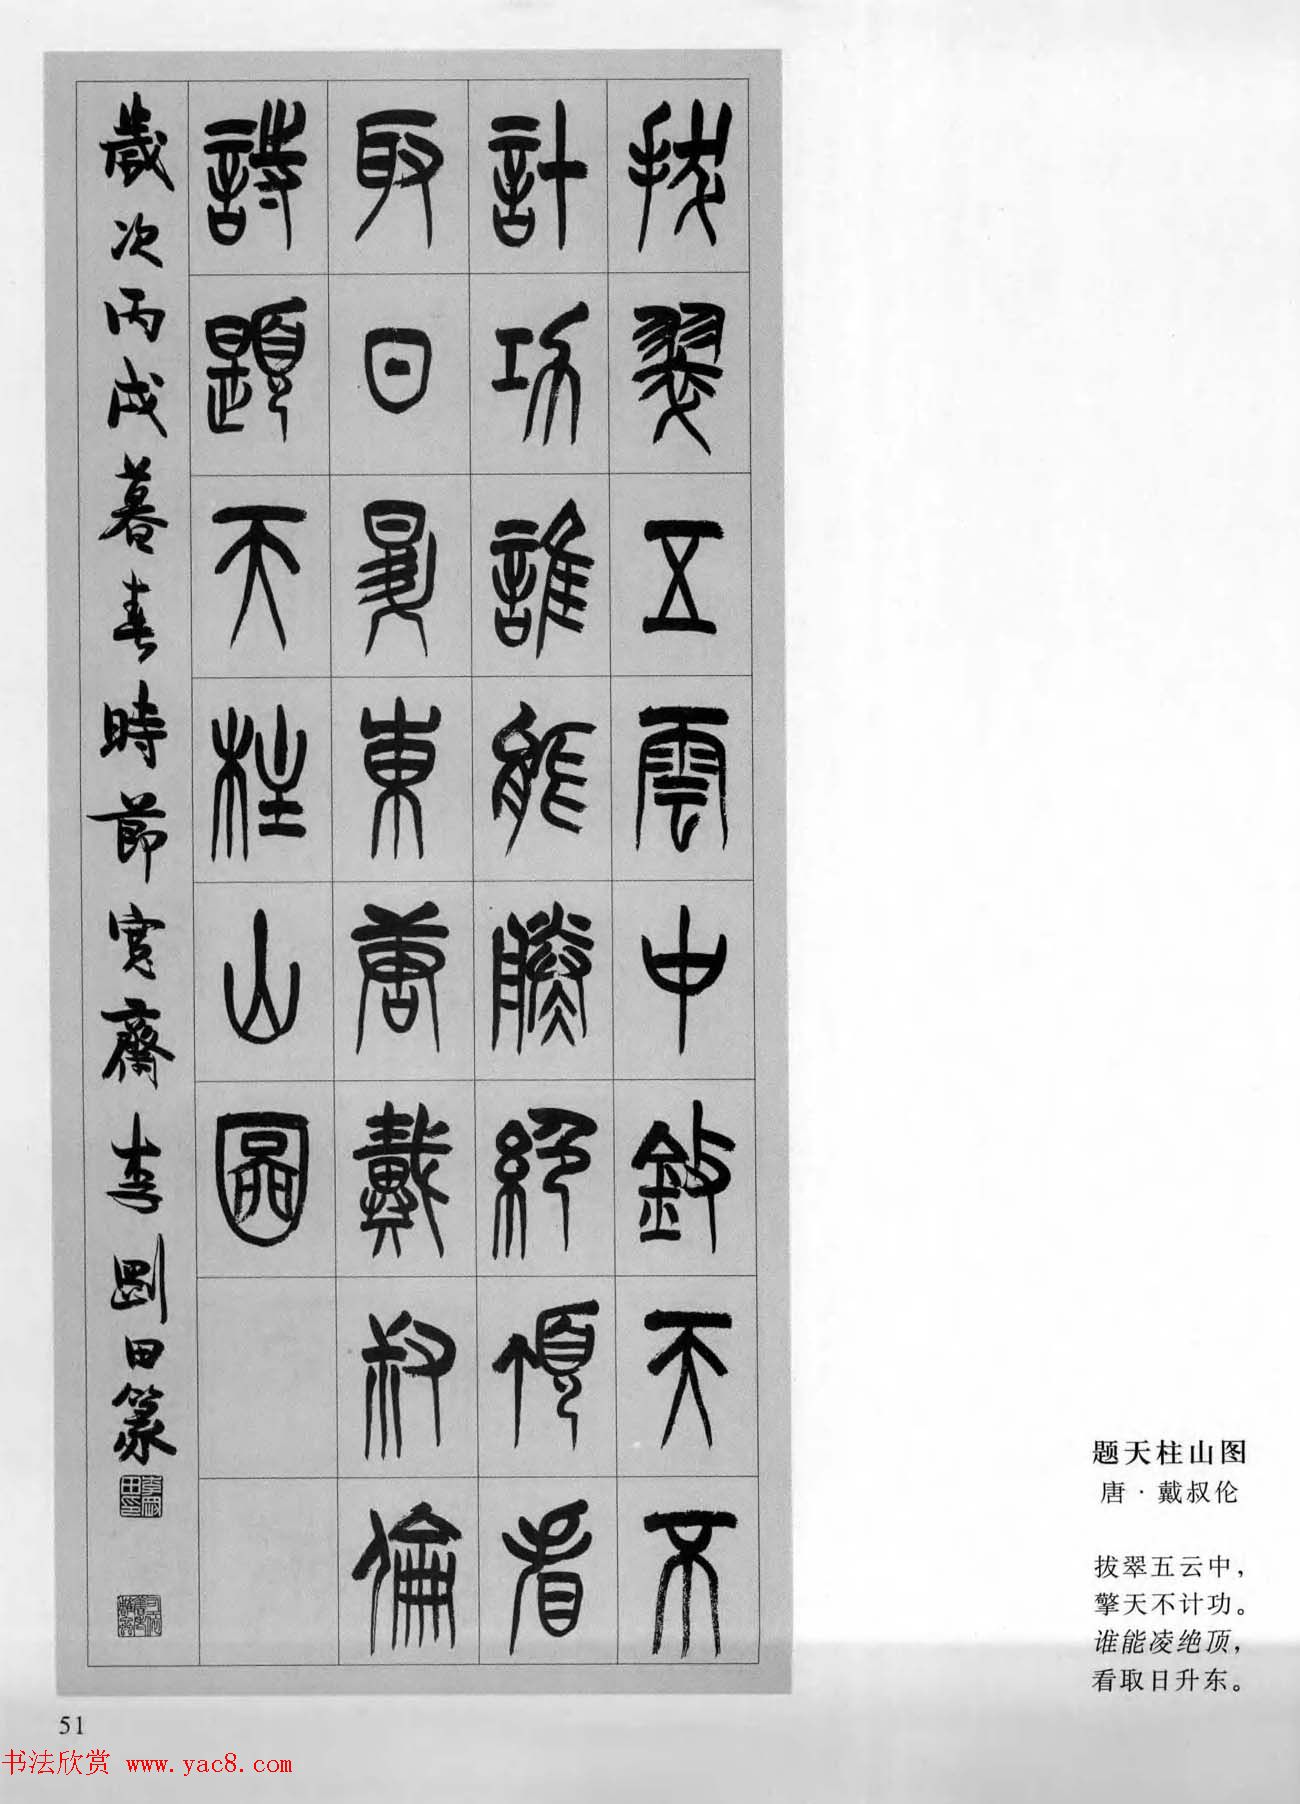 拔翠五雲中鈙天不
計功誰能凌絕頂看
取日昇東唐戴叔倫
詩題天柱山圖
歲次丙戌暮春時節寬齋李剛田篆
李剛田印
题天柱山图
唐·戴叔伦
拔翠五云中，
擎天不计功。
谁能凌绝顶，
看取日升东。
51
书法欣赏 www.yac8.com